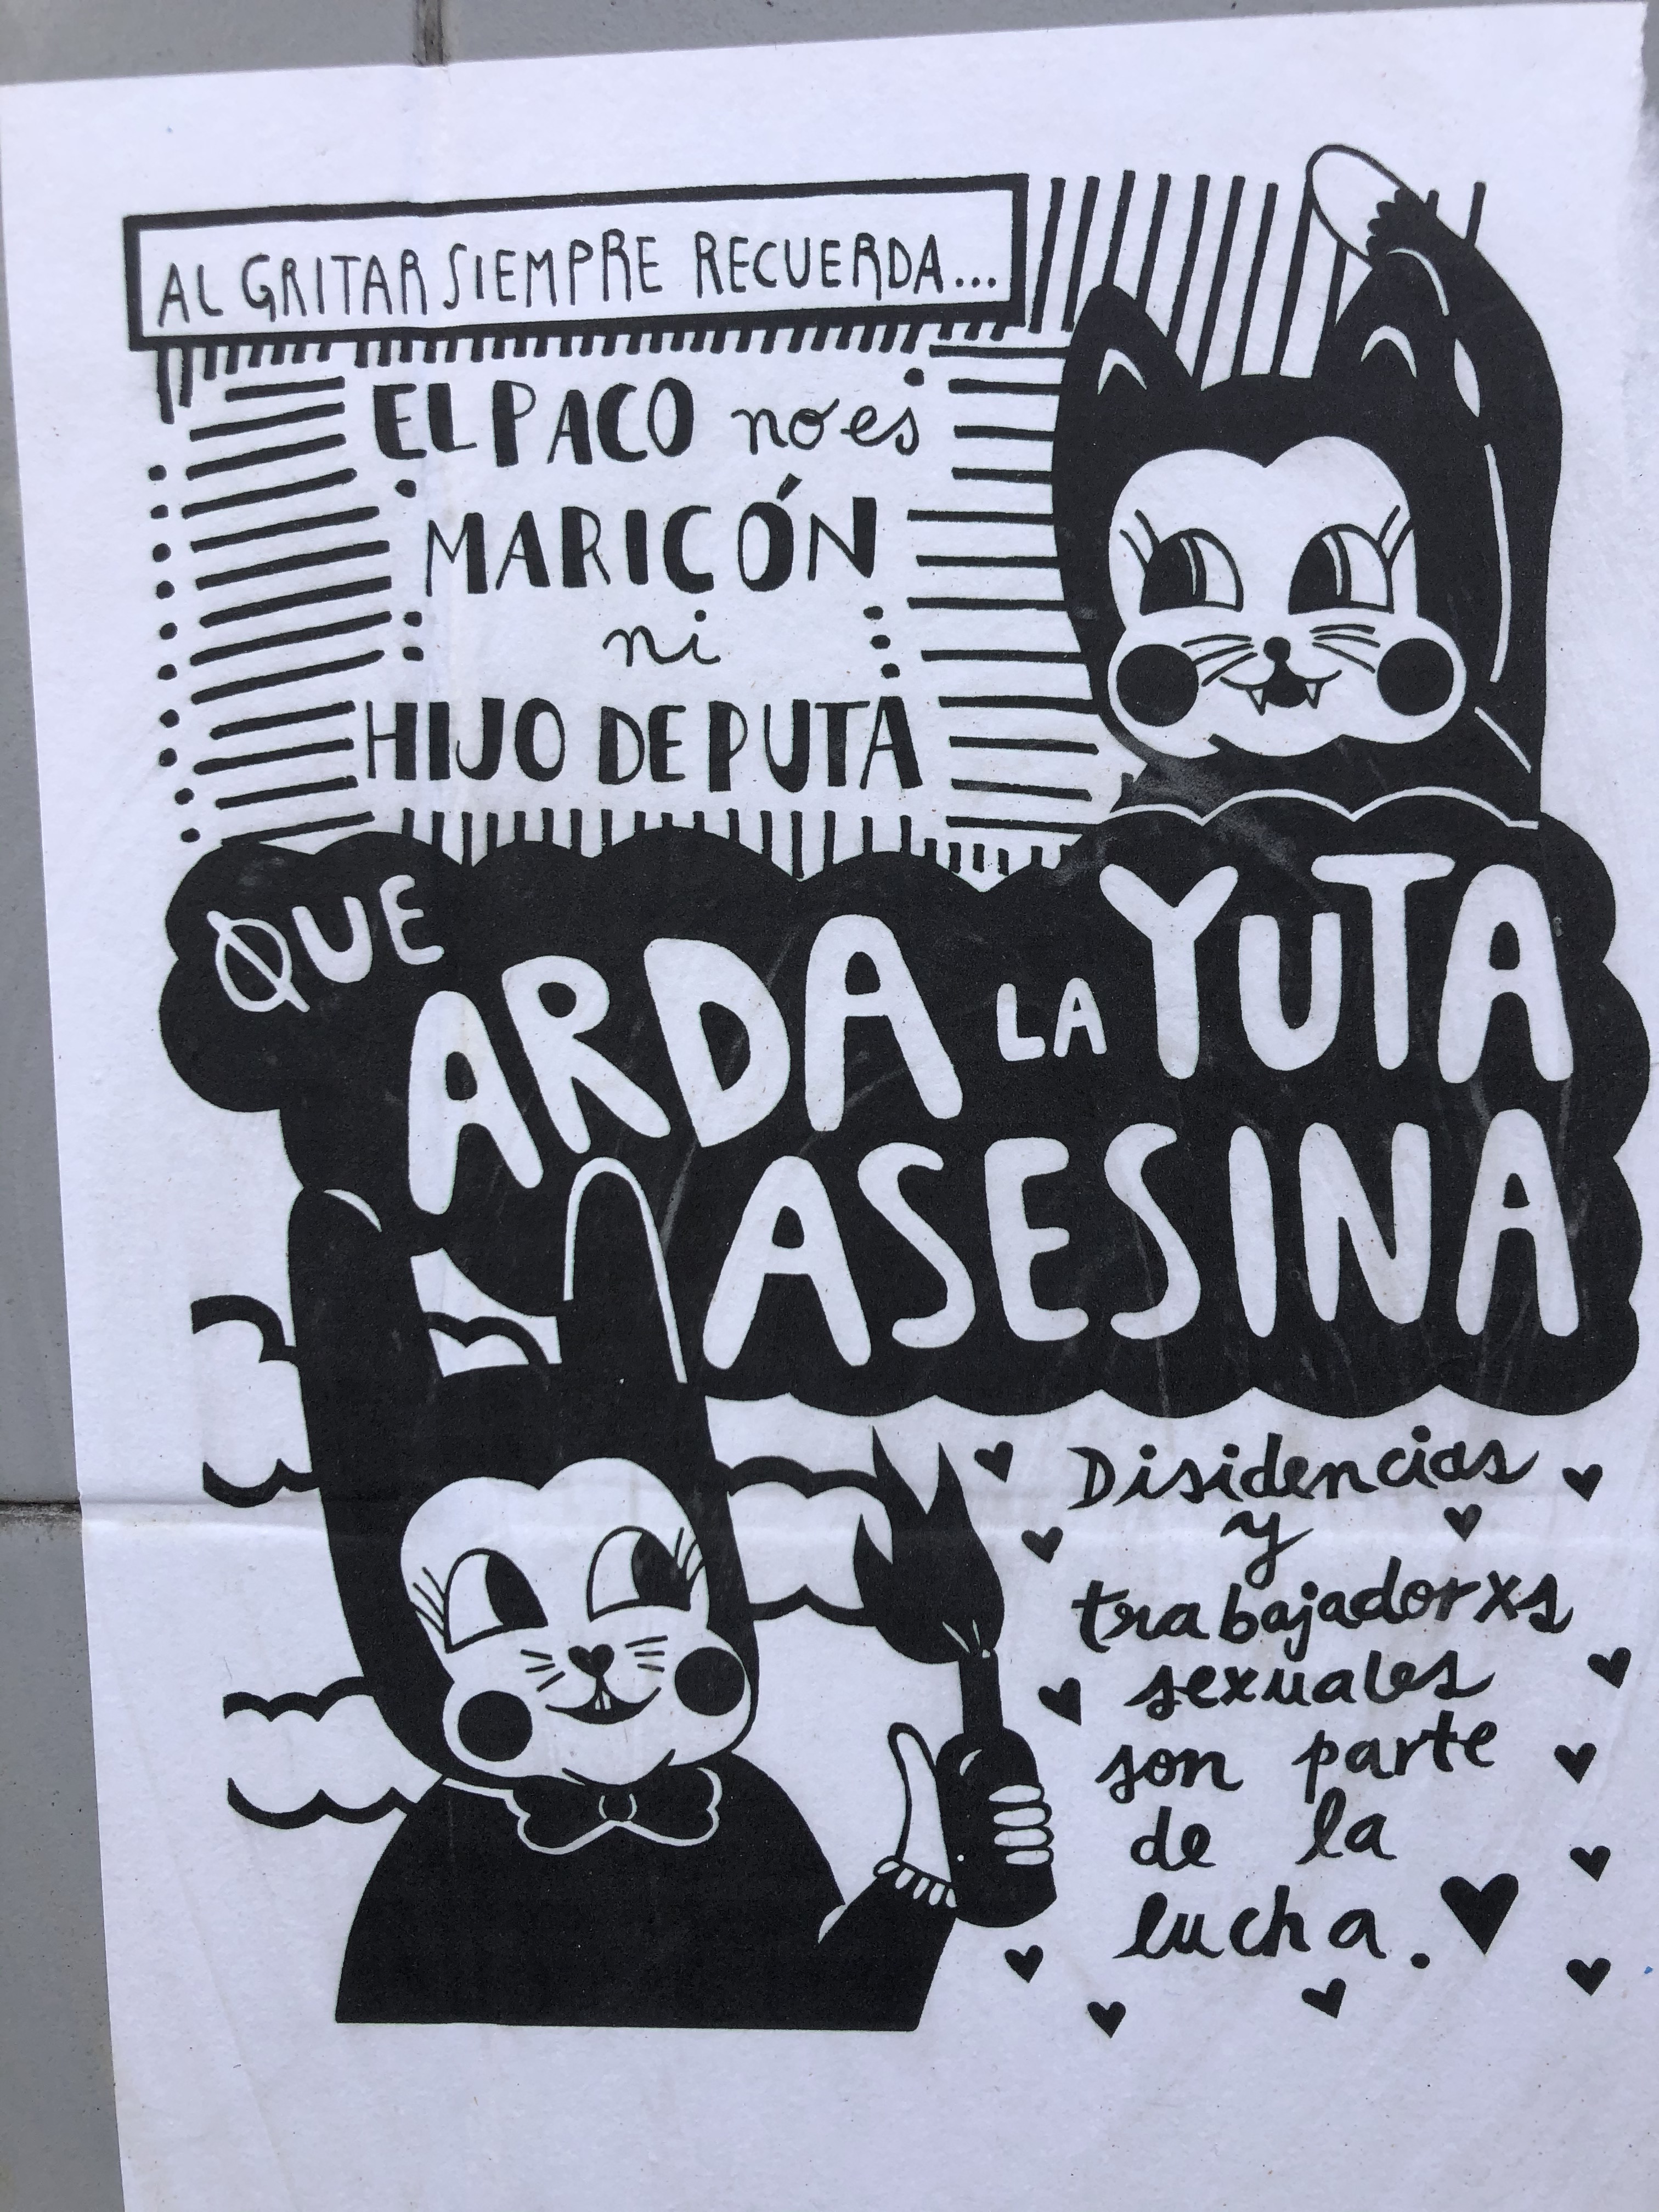 AL GRITAR SIEMPRE RECUERDA...
EL PACO no es
MARICÓN
ni
HIJO DE PUTA
QUE
ARDA LA YUTA
ASESINA
Disidencias
y
trabajadorxs
sexuales
son parte
de la
lucha.